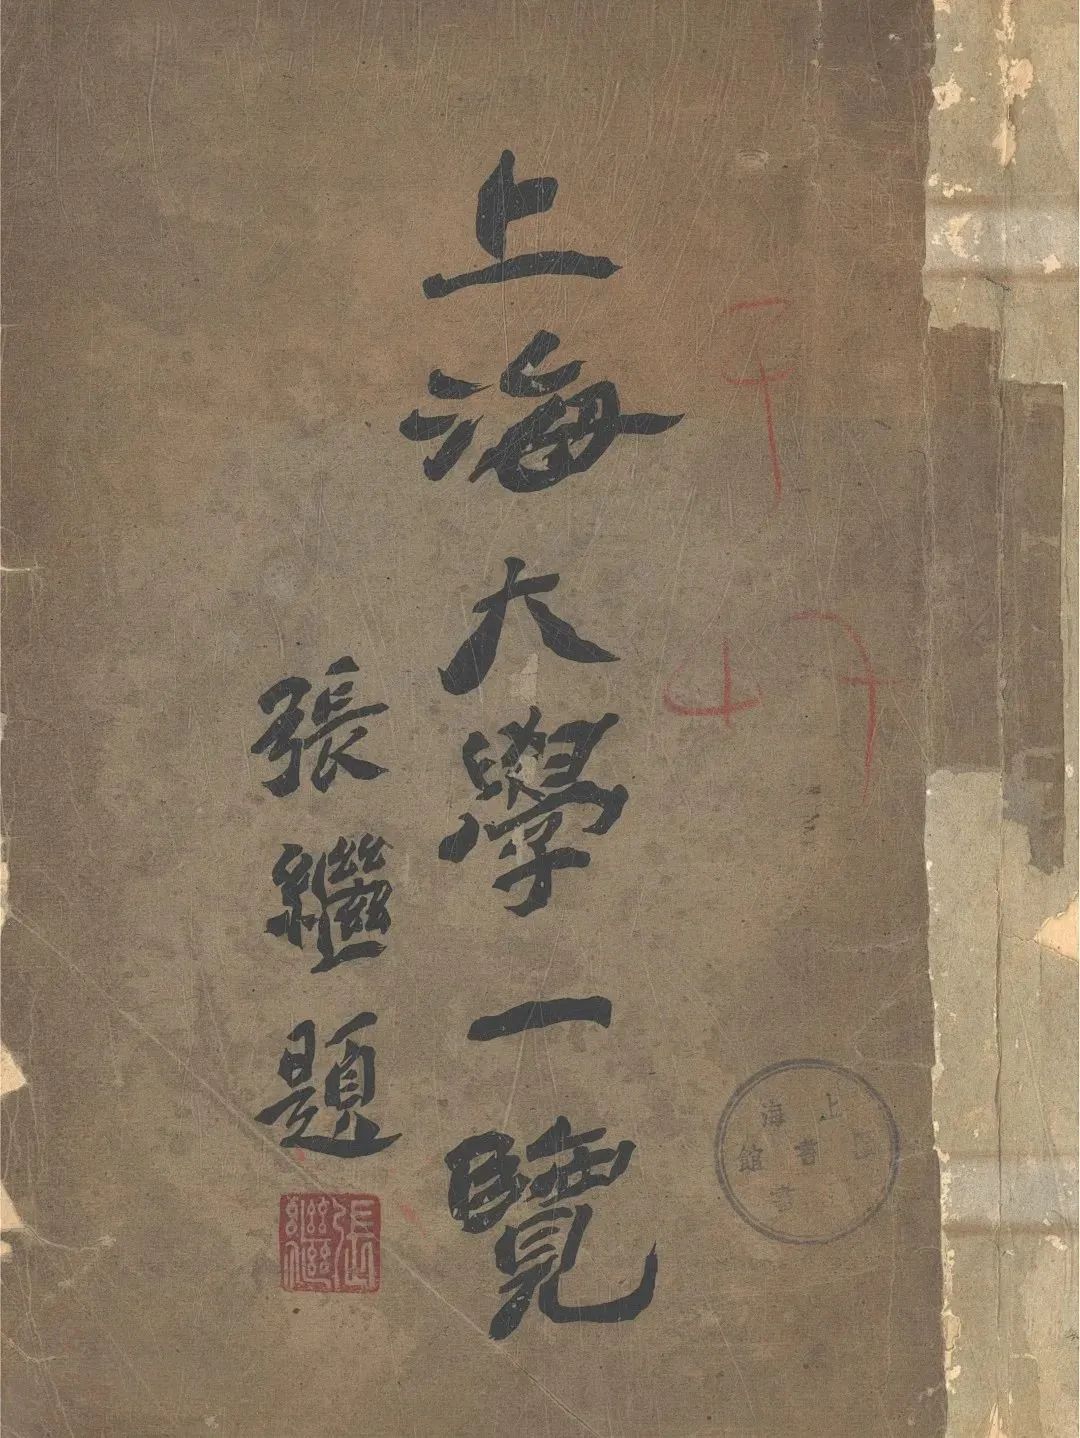 上海大學一覽
張繼題
張繼
上海圖書館藏書